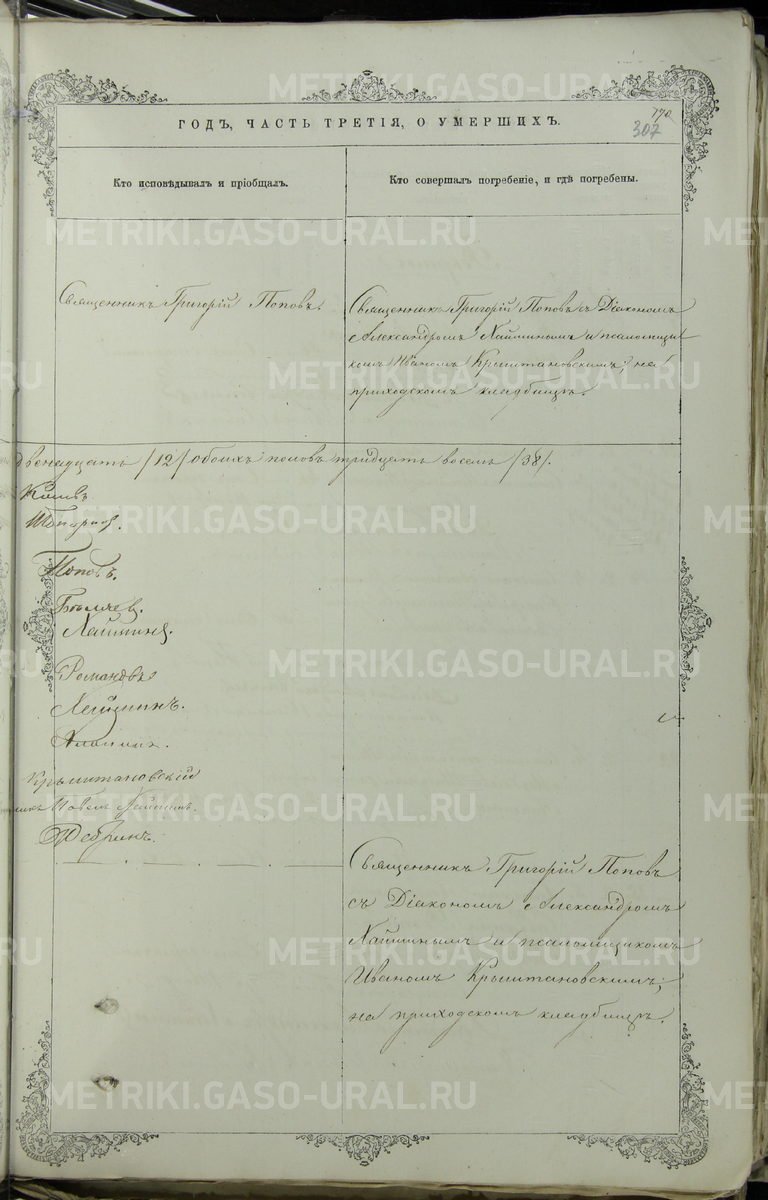 170
307
ГОДЪ, ЧАСТЬ ТРЕТІЯ, О УМЕРШИХЪ.
Кто исповѣдывалъ и пріобщалъ.
Кто совершалъ погребеніе, и гдѣ погребены.
Священникъ Григорій Поповъ.
Священникъ Григорій Поповъ съ Діакономъ
Александромъ Хайминымъ и псаломщи
комъ Иваномъ Крыштановскимъ; на
приходскомъ кладбищѣ.
двенадцать /12/ обоихъ половъ тридцать восемь /38/.
Поповъ.
Романовъ
Крыштановскій
Павелъ
Священникъ Григорій Поповъ
съ Діакономъ Александромъ
Хайминымъ и псаломщикомъ
Иваномъ Крыштановскимъ;
на приходскомъ кладбищѣ.
METRIKI.GASO-URAL.RU